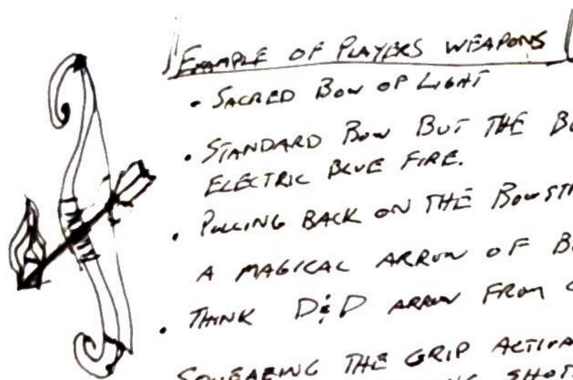 EXAMPLE OF PLAYERS WEAPONS
• SACRED BOW OF LIGHT
• STANDARD BOW BUT THE
ELECTRIC BLUE FIRE.
• PULLING BACK ON THE
A MAGICAL ARROW OF
• THINK D&D ARROW FROM
SQUEAZING THE GRIP
SHOT